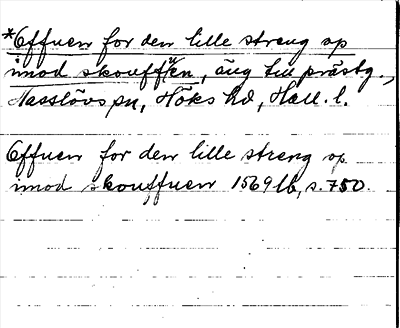 *Effuen for den lille streng op
imod skouffuen, äng till prästg.,
Hasslövs sn, Höks hd, Hall. l.
Effuen for den lille streng op
imod skouffuen 1569 lb, s. 750.